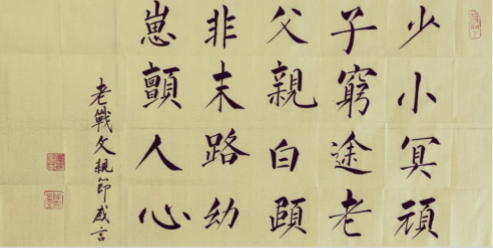 少小冥頑
子窮途老
父親白頭
非末路幼
崽顫人心
老戰父親節感言